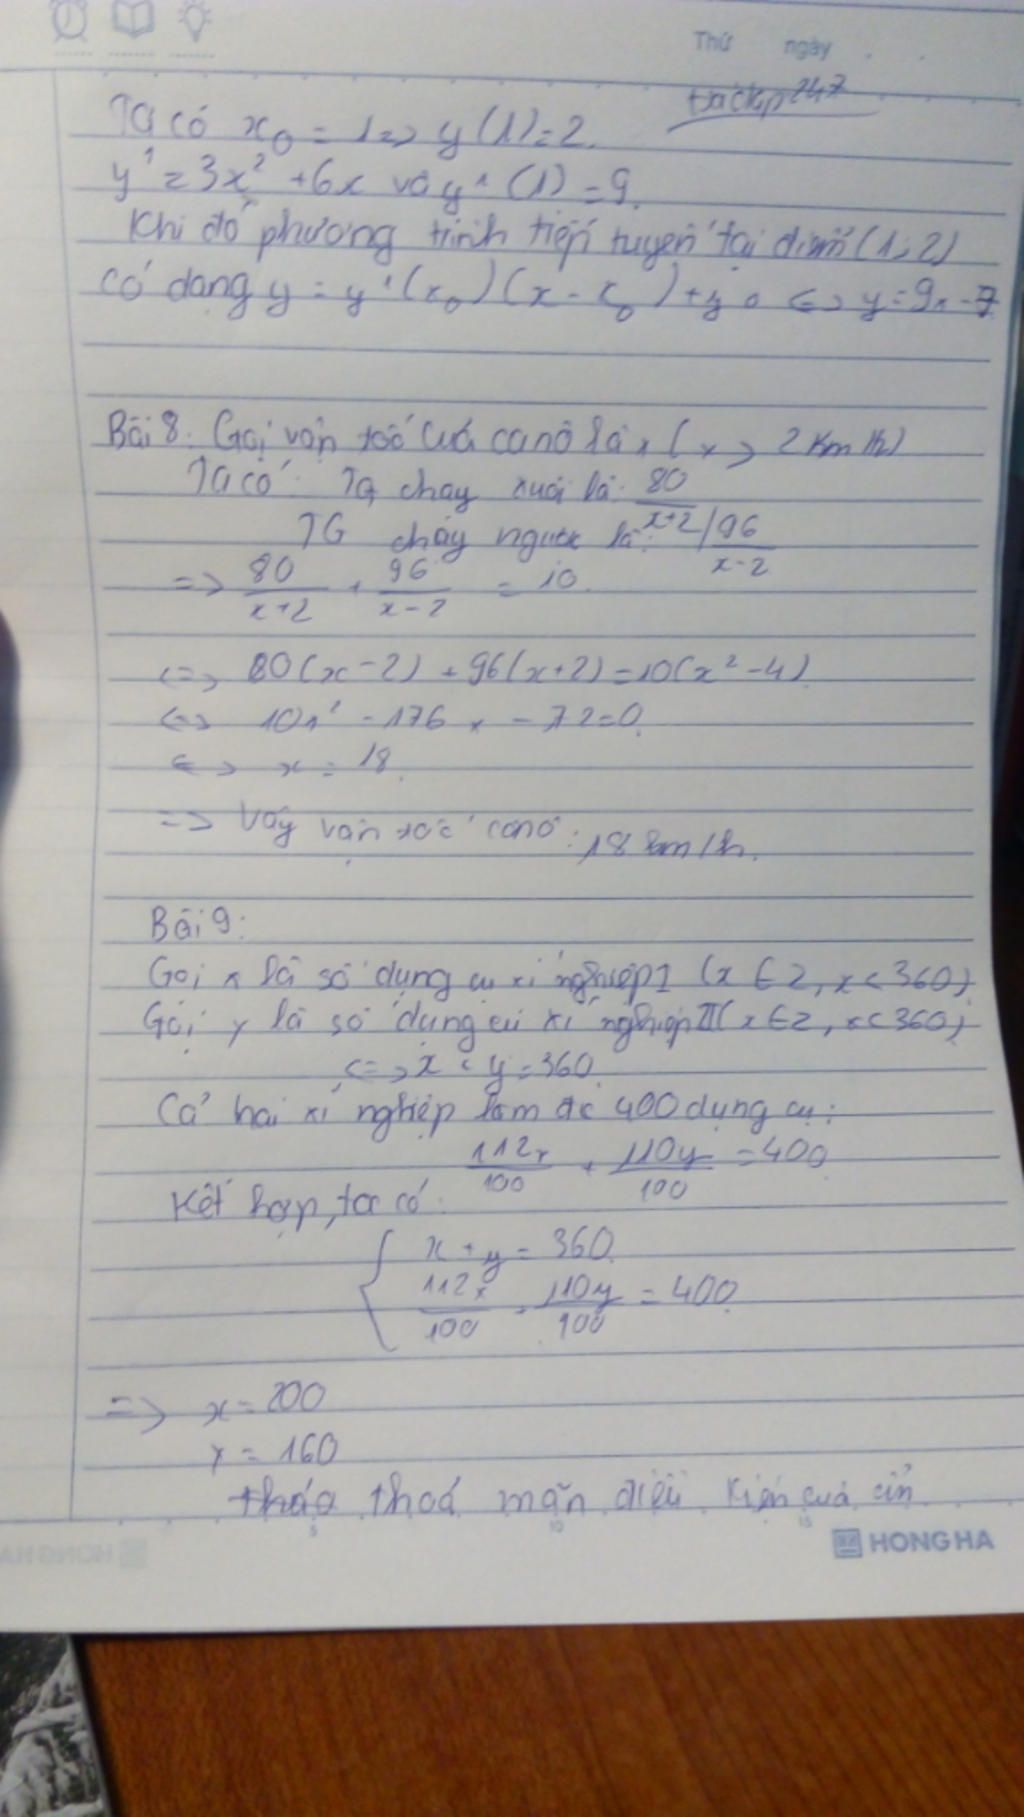 Thứ ngày
Ta có x₀ = 1 => y(1) = 2.
y' = 3x² + 6x và y'(1) = 9.
Khi đó phương trình tiếp tuyến tại điểm (1; 2)
có dạng y = y'(x₀)(x - x₀) + y₀ <=> y = 9x - 7
Bài 8. Gọi vận tốc của canô là x (x > 2 km/h)
Ta có: TG chạy xuôi là: 80/(x+2)
TG chạy ngược là: 96/(x-2)
=> 80/(x+2) + 96/(x-2) = 10.
<=> 80(x-2) + 96(x+2) = 10(x² - 4)
<=> 10x² - 176x - 72 = 0
<=> x = 18.
=> Vậy vận tốc canô: 18 km/h.
Bài 9:
Gọi x là số dụng cụ xí nghiệp I (x ∈ Z, x < 360)
Gọi y là số dụng cụ xí nghiệp II (x ∈ Z, x < 360)
<=> x + y = 360
Cả hai xí nghiệp làm đc 400 dụng cụ:
112x/100 + 110y/100 = 400
Kết hợp, ta có:
{ x + y = 360
112x/100 + 110y/100 = 400
=> x = 200
y = 160
thoả mãn điều kiện của
HONG HA